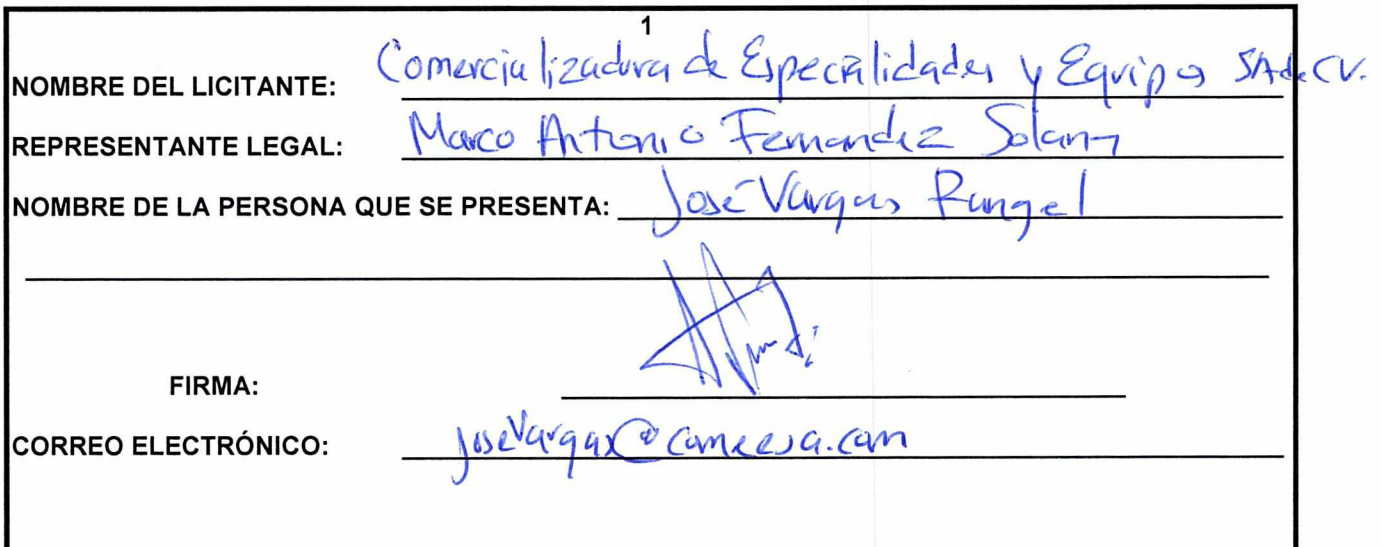 1
NOMBRE DEL LICITANTE: Comercializadora de Especialidades y Equipos SA de CV.
REPRESENTANTE LEGAL: Marco Antonio Fernandez Solano
NOMBRE DE LA PERSONA QUE SE PRESENTA: José Vargas Rangel
FIRMA:
CORREO ELECTRÓNICO: joseVargas@comeesa.com